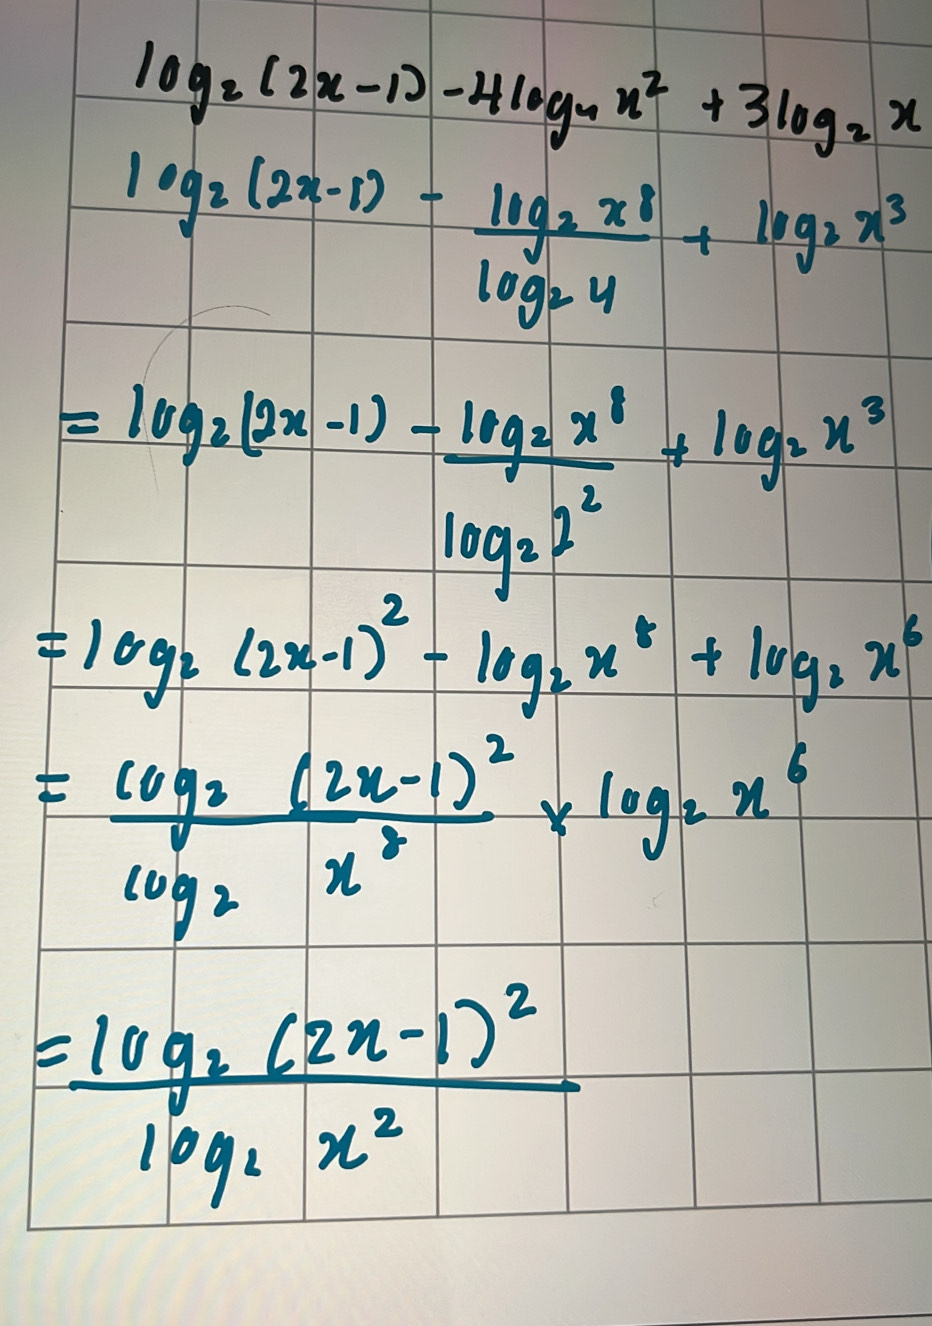 log₂(2x-1) - 4log₄x² + 3log₂x
log₂(2x-1) - log₂x⁸/log₂4 + log₂x³
= log₂(2x-1) - log₂x⁸/log₂2² + log₂x³
= log₂(2x-1)² - log₂x⁸ + log₂x⁶
= log₂(2x-1)²/log₂x⁸ × log₂x⁶
= log₂(2x-1)²/log₂x²